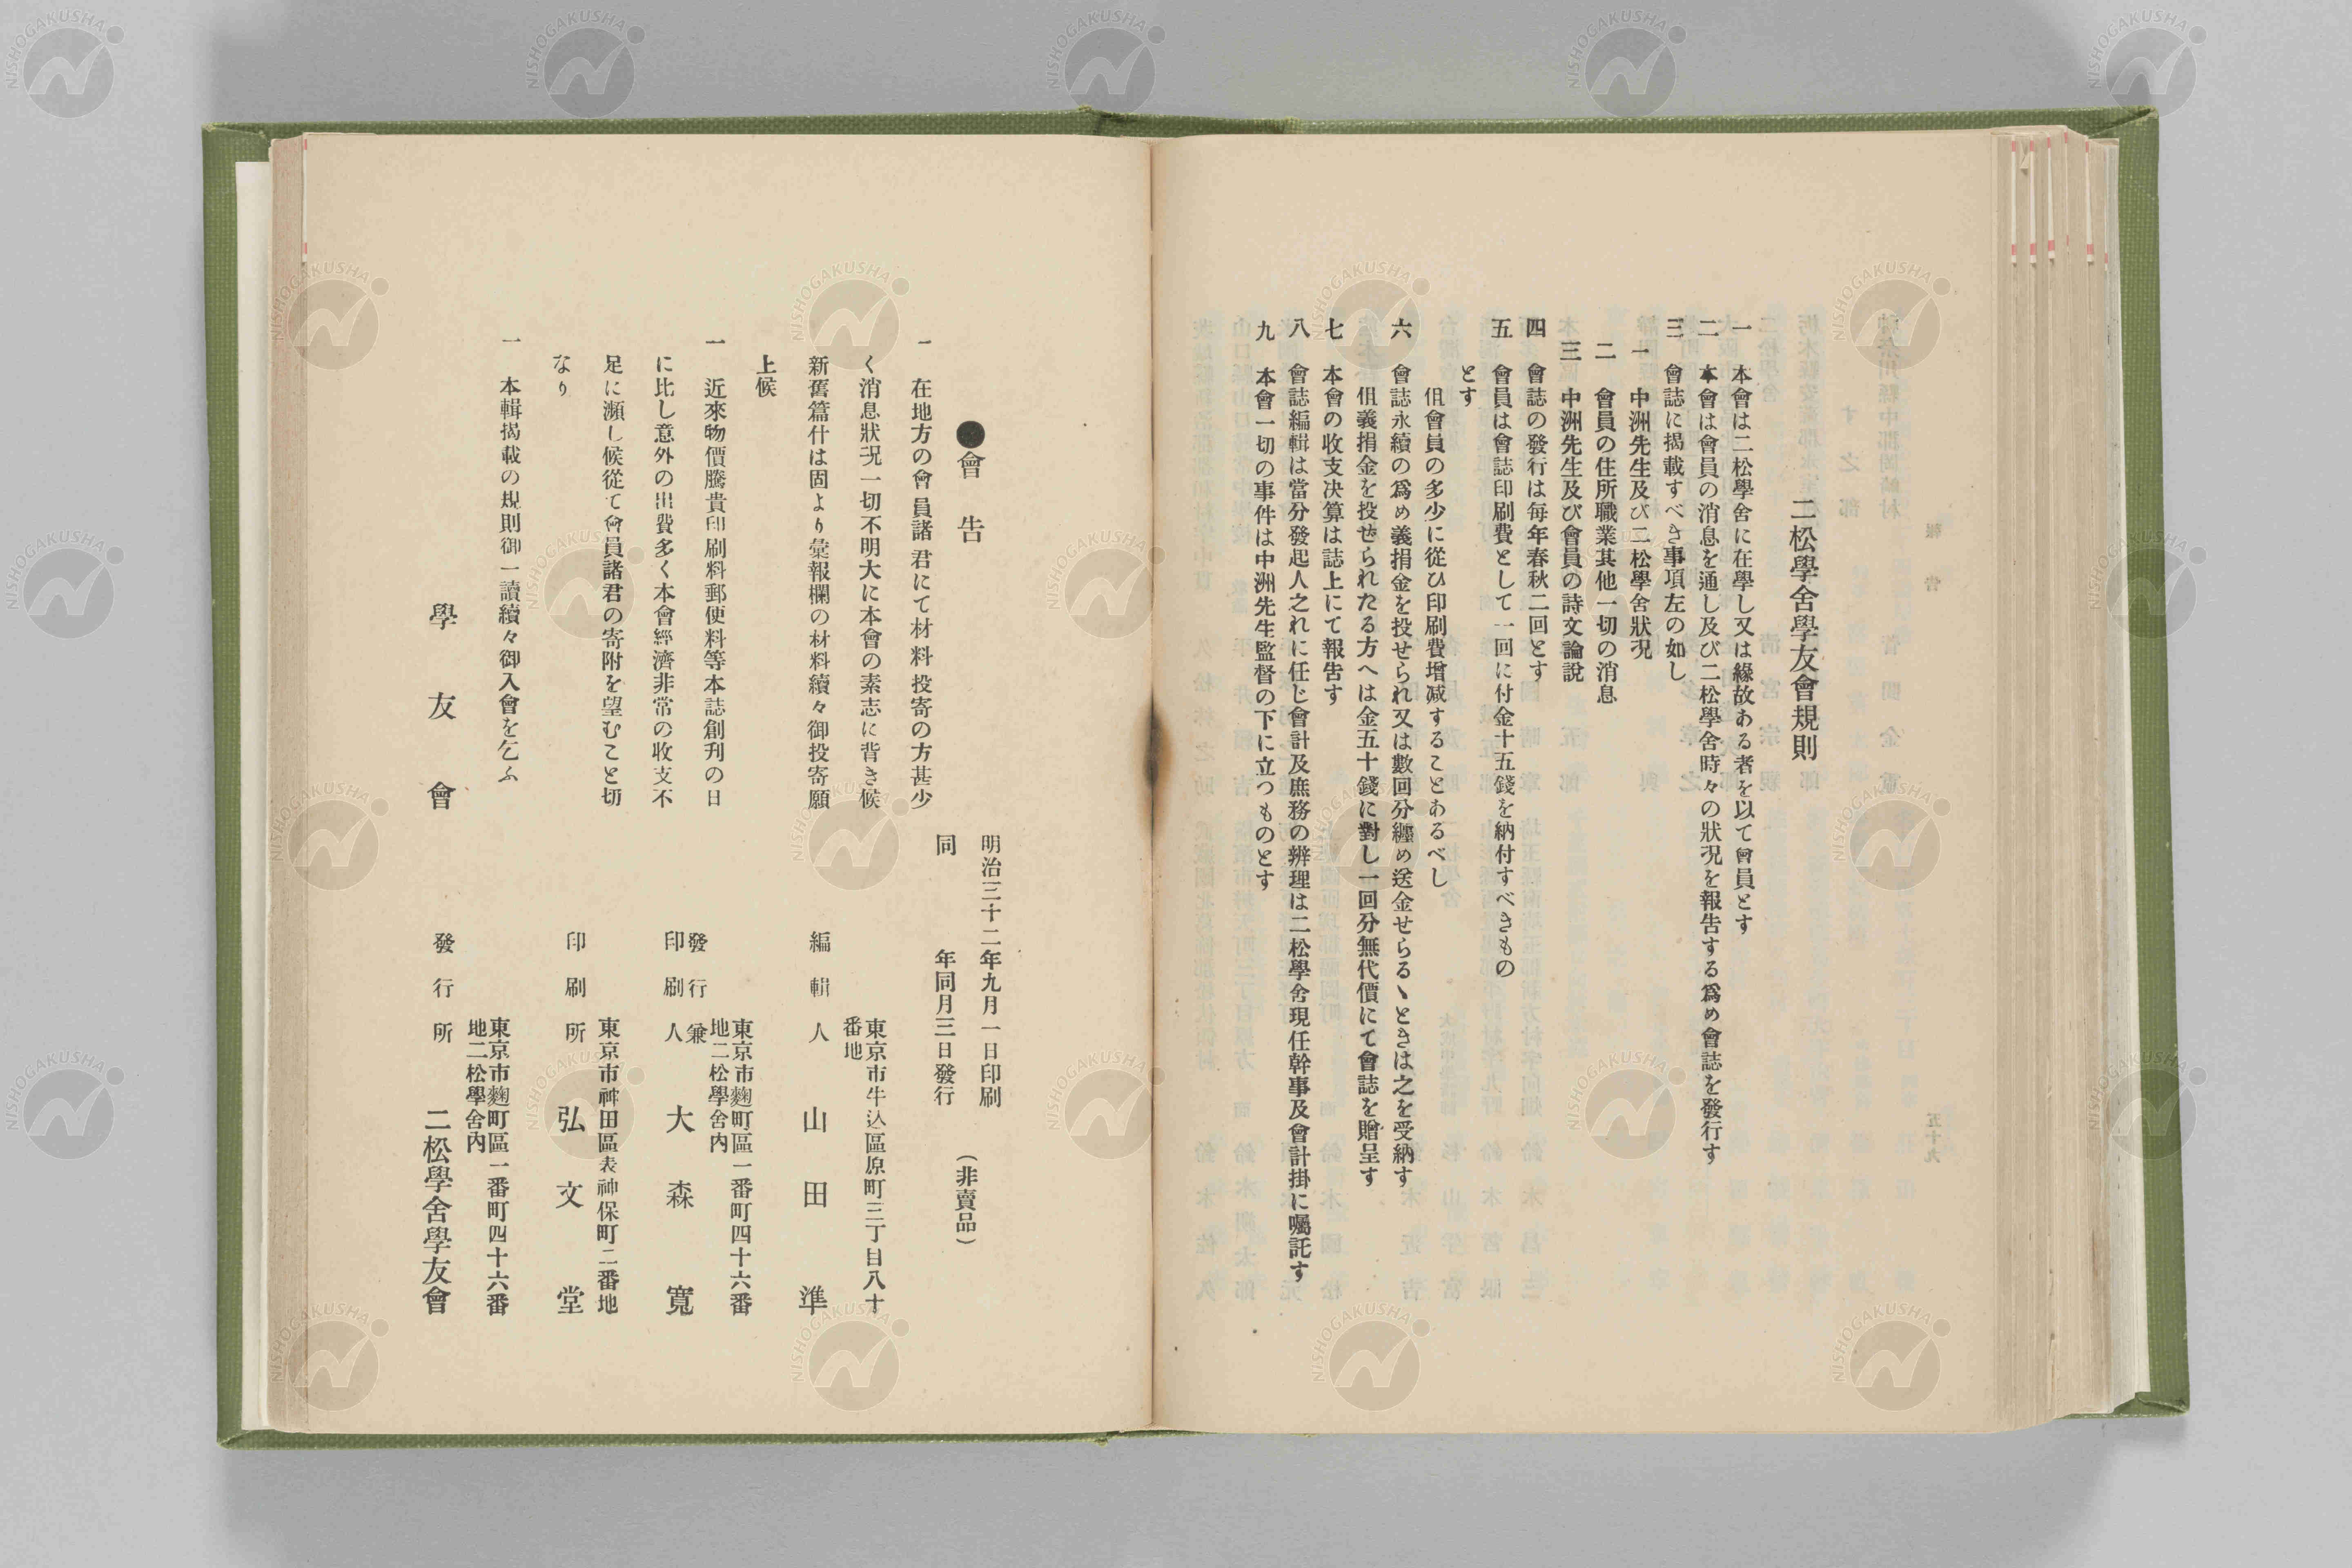 二松學舍學友會規則
一　本會は二松學舍に在學し又は緣故ある者を以て會員とす
二　本會は會員の消息を通し及び二松學舍時々の狀況を報告する爲め會誌を發行す
三　會誌に揭載すべき事項左の如し
一　中洲先生及び二松學舍狀況
二　會員の住所職業其他一切の消息
三　中洲先生及び會員の詩文論說
四　會誌の發行は每年春秋二回とす
五　會員は會誌印刷費として一回に付金十五錢を納付すべきもの
とす
但會員の多少に從ひ印刷費增减することあるべし
六　會誌永續の爲め義捐金を投せられ又は數回分纒め送金せらるゝときは之を受納す
但義捐金を投せられたる方へは金五十錢に對し一回分無代價にて會誌を贈呈す
七　本會の收支决算は誌上にて報告す
八　會誌編輯は當分發起人之れに任じ會計及庶務の辨理は二松學舍現任幹事及會計掛に囑託す
九　本會一切の事件は中洲先生監督の下に立つものとす
●會告
一　在地方の會員諸君にて材料投寄の方甚少
く消息狀況一切不明大に本會の素志に背き候
新舊篇什は固より彙報欄の材料續々御投寄願
上候
一　近來物價騰貴印刷料郵便料等本誌創刋の日
に比し意外の出費多く本會經濟非常の收支不
足に瀕し候從て會員諸君の寄附を望むこと切
なり
一　本輯揭載の規則御一讀續々御入會を乞ふ
學友會
明治三十二年九月一日印刷
同　年同月三日發行
（非賣品）
東京市牛込區原町三丁目八十
番地
編輯人　山田準
東京市麴町區一番町四十六番
地二松學舍內
發行兼
印刷人　大森寬
東京市神田區表神保町二番地
印刷所　弘文堂
東京市麴町區一番町四十六番
地二松學舍內
發行所　二松學舍學友會
NISHOGAKUSHA